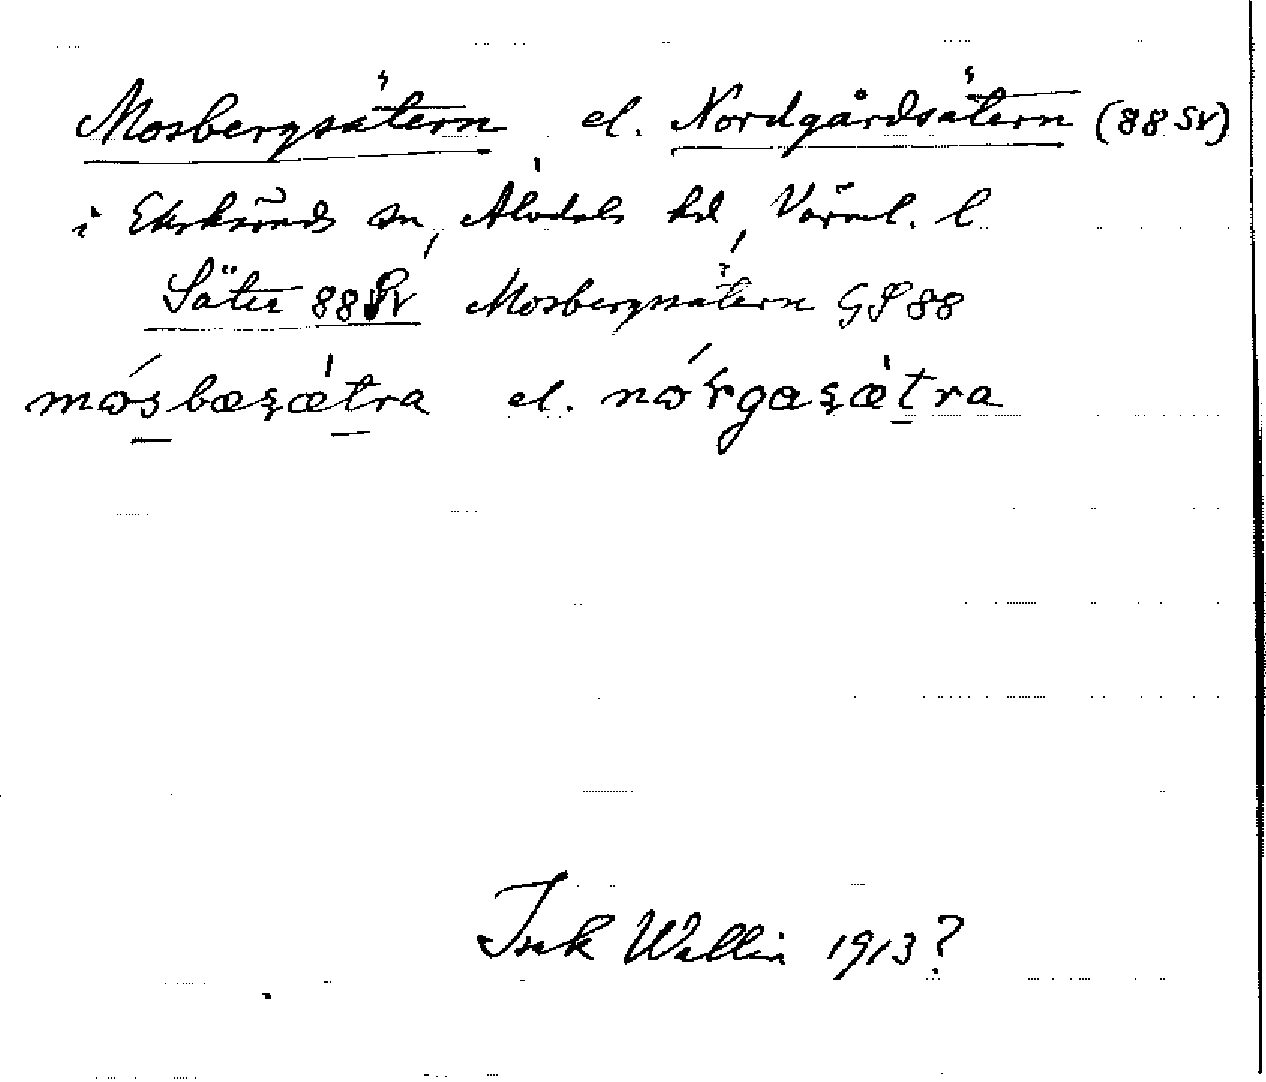 Mosbergsätern el. Nordgårdsätern (88 SV)
i Ekshärads sn, Älvdals hd, Värml. l.
Säter 88 SV Mosbergssätern GS 88
mósbæʂætra el. nórgaʂætra
Isak Wallin 1913?